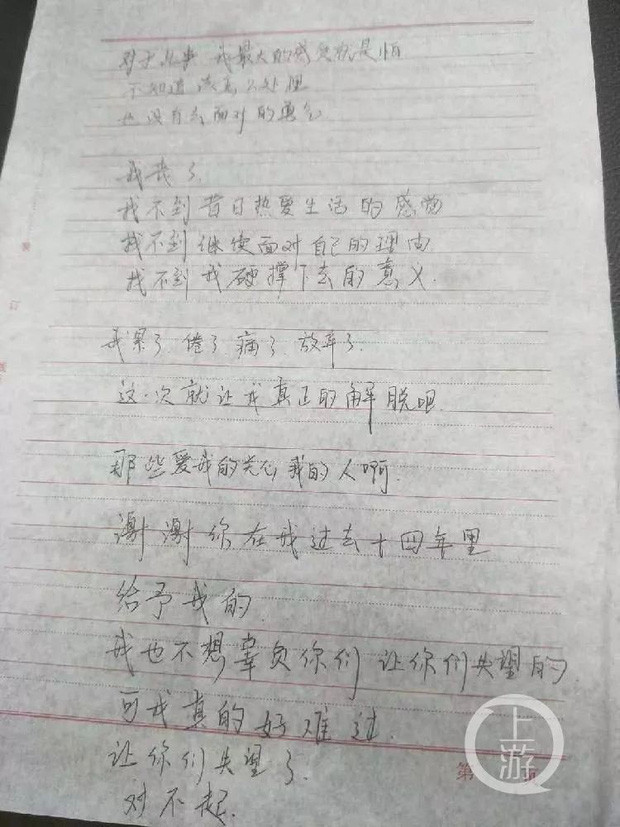 对于此事 我最大的感觉就是怕
不知道该怎么处理
也没有去面对的勇气
我
找不到昔日热爱生活的感觉
找不到继续面对自己的理由
找不到我硬撑下去的意义.
我累了.倦了.痛了.放弃了.
这一次就让我真正的解脱吧
那些爱我的关心我的人啊.
谢谢你在我过去十四年里
给予我的.
我也不想辜负你们 让你们失望的.
可我真的好难过.
让你们失望了
对不起.
上游
第 页